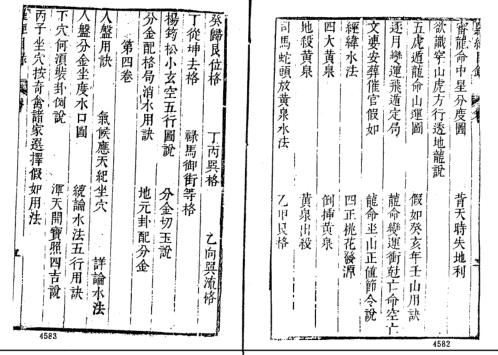 審龍命中星分度圖 昔天時失地利
欲識穿山虎方行透地龍說
五虎遁龍命山運圖 假如癸亥年壬山用訣
逐月變運飛遁定局 龍命變運衝尅亡命空亡
文婁安葬催官假如 龍命坐山正値節令說
經緯水法 四正桃花發源
四大黃泉 倒挿黃泉
地殺黃泉 黃泉出殺
司馬蛇頭放黃泉水法 乙甲艮格
4582
癸歸艮位格 丁丙巽格 乙向巽流格
丁從坤去格 祿馬御街等格
楊筠松小玄空五行圖說 分金切玉說
分金配格局消水用訣 地元卦配分金
第四卷
人盤用訣 氣候應天紀坐穴 詳論水法
人盤分金坐度水口圖 總論水法五行用訣
下穴何須裝卦例說 渾天開寶照四吉說
丙子坐穴按奇禽諸家選擇假如用法
4583